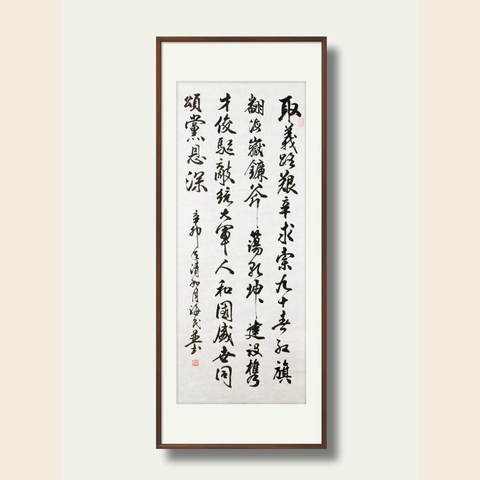 取義路艱辛求索九十春紅旗
翻海嶽鐮斧蕩乾坤建設攜
才俊驅敵統大軍人和國盛世同
頌黨恩深
辛卯年清和月海民書